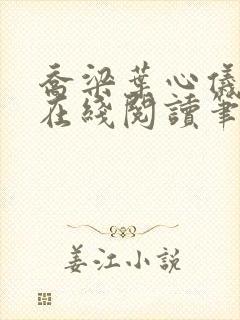 乔梁葉心儀
在綫閱讀筆
姜江小説